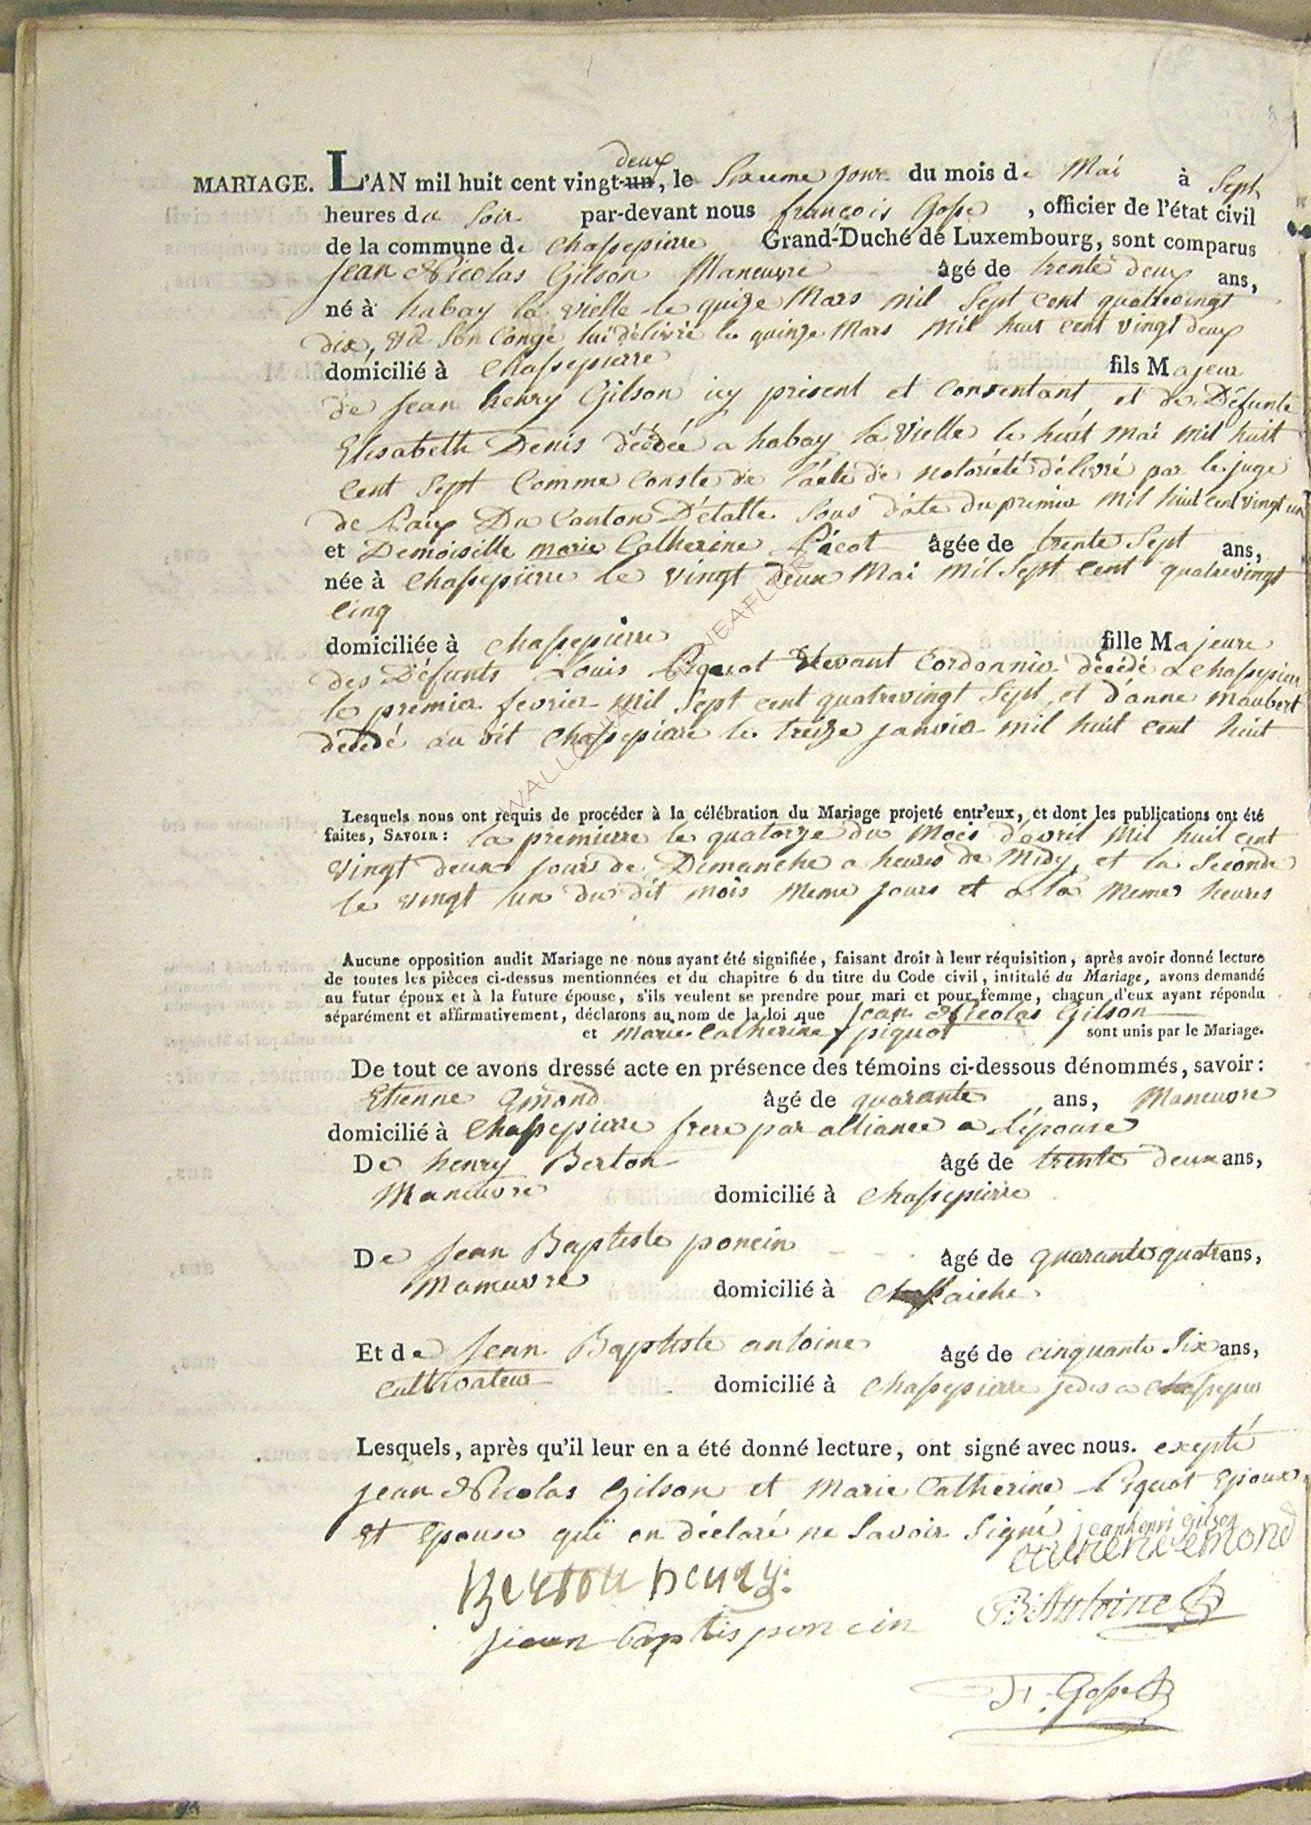 deux
MARIAGE. L'AN mil huit cent vingt-un, le Sixieme jour du mois de Mai à Sept
heures du Soir par-devant nous françois Gosse, officier de l'état civil
de la commune de Chassepierre Grand-Duché de Luxembourg, sont comparus
Jean Nicolas Gilson Maneuvre âgé de trente deux ans,
né à habay la vielle le quize Mars mil Sept cent quatrevingt
dix, Son Congé lui délivré le quinze Mars mil huit cent vingt deux
domicilié à Chassepierre fils Majeur
de Jean henry Gilson icy présent et Consentant et de Défunte
Elisabeth Denis décédée a habay la Vielle le huit Mai mil huit
Cent Sept Comme Conste de l'acte de notoriété délivré par le juge
de Paix Du Canton D'étalle Sous date du premier mil huit cent vingt un
et Demoiselle marie Catherine Pécot âgée de trente Sept ans,
née à Chassepierre le vingt deux Mai mil Sept Cent quatrevingt
Cinq
domiciliée à Chassepierre fille Majeure
des Défunts Louis Piquot vivant Cordonnier décédé a Chassepierre
le premier fevrier mil Sept cent quatrevingt Sept et d'anne Maubert
décédé au dit Chassepierre le treize janvier mil huit cent huit
Lesquels nous ont requis de procéder à la célébration du Mariage projeté entr'eux, et dont les publications ont été
faites, SAVOIR: la premierre le quatorze du Mois d'avril mil huit cent
vingt deux jours de Dimanche a heures de Midy, et la Seconde
le vingt un du dit mois meme jours et a la meme heures
Aucune opposition audit Mariage ne nous ayant été signifiée, faisant droit à leur réquisition, après avoir donné lecture
de toutes les pièces ci-dessus mentionnées et du chapitre 6 du titre du Code civil, intitulé du Mariage, avons demandé
au futur époux et à la future épouse, s'ils veulent se prendre pour mari et pour femme, chacun d'eux ayant répondu
séparément et affirmativement, déclarons au nom de la loi que Jean Nicolas Gilson
et Marie Catherine piquot sont unis par le Mariage.
De tout ce avons dressé acte en présence des témoins ci-dessous dénommés, savoir:
Etienne Gmond âgé de quarante ans, Maneuvre
domicilié à Chassepierre frere par alliance a l'épouse
De henry Berton âgé de trente deux ans,
Maneuvre domicilié à Chassepierre
De Jean Baptiste poncin âgé de quarante quatre ans,
Maneuvre domicilié à
Et de Jean Baptiste antoine âgé de cinquante Six ans,
Cultivateur domicilié à Chassepierre
Lesquels, après qu'il leur en a été donné lecture, ont signé avec nous. exepté
Jean Nicolas Gilson et Marie Catherine Piquot Epoux
et Epouse qui on déclaré ne Savoir Signé jean henri gilson
etienne gemond
Berton henry.
B. Antoine
jean baptis poncin
F. Gosse
WALLONIA LINEAFLOR